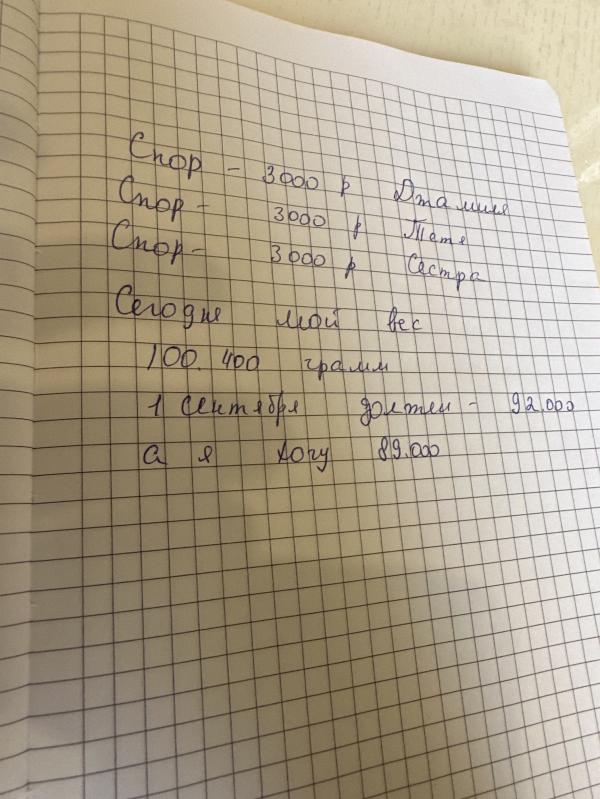 Спор - 3000 р Джамиля
Спор - 3000 р Татя
Спор - 3000 р Сестра
Сегодня мой вес
100.400 грамм
1 сентября должен - 92.000
а я хочу 89.000